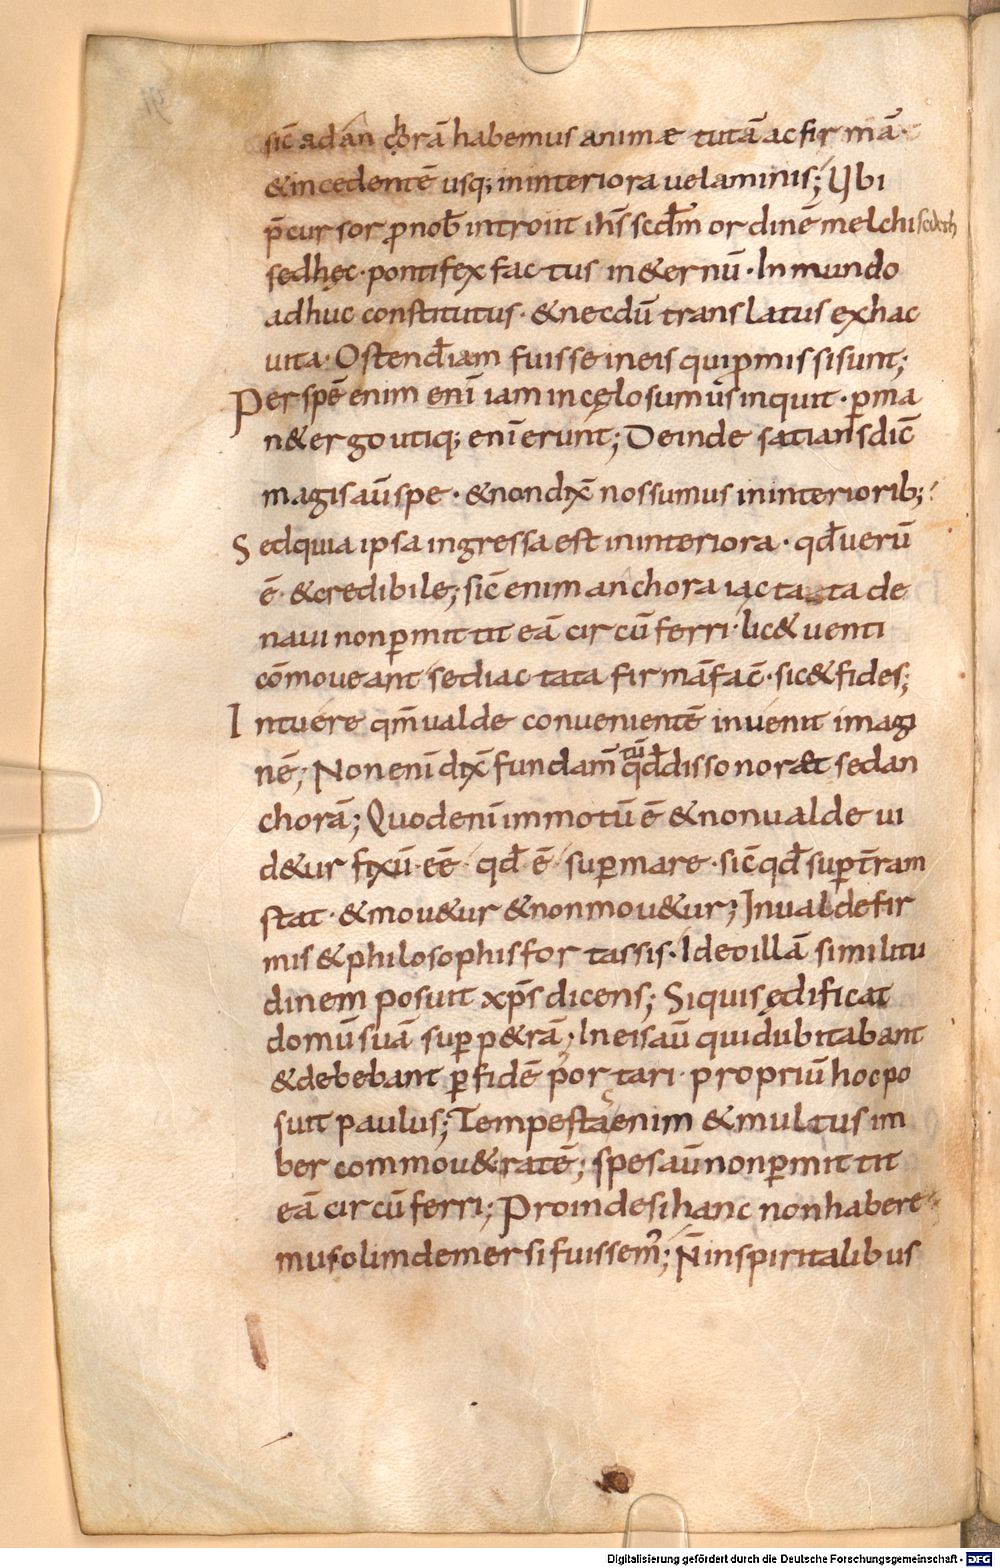 sic̄ ad an c̣horā habemus animæ tutā ac fir mā·
&incedentē usq; ininteriora uelaminis; Ubi
p̄cursor ꝓnob̄ introiit ih̄s scdm̄ ordinē melchi sedeth
sedhęc· pontifex factus in&ernū· In mundo
adhuc constitutus· &necdū translatus exhac
uita· Ostend̄iam fuisse ineis quipmissi sunt;
Per spē enim enī iam incęlo sumus inquit· ꝑma
n&ergo utiq; enī erunt; Deinde satiansdic̄
magisaūspe· &nondix̄ nossumus ininteriorib;
Sedquia ipsa ingressa est ininteriora· qd̄ uerū
ē· &credibile; sic̄ enim anchora iactata de
naui nonꝑmittit eā circū ferri· lic& uenti
cōmoueant sed iactata firmā fac̄· sic&fides;
Intuere qm̄ ualde conuenientē inuenit imagi
nē; Non enī dix̄ fundam̄tū qd̄dissonoræt sedan
chorā; Quodenī immotū ē &nonualde ui
d&ur fixū eē· qd̄ ē suꝑmare· sic̄ qd̄ suꝑt̄ram
stat· &mou&ur &nonmou&ur; Inualdefir
mis &philosophis fortassis· Ideoillā similitu
dinem posuit xp̄s dicens; Siquis ędificat
domū suā suꝑ p&rā· In eisaū quidubitabant
&debebant ꝑfidē portari· propriū hocpo
suit paulus; Tempestas enim &multus im
ber commou&ratē; spesaū nonꝑmittit
eā circū ferri; Proinde sihanc nonhabere
mus olimdemersi fuissem̄; N̄inspiritalibus